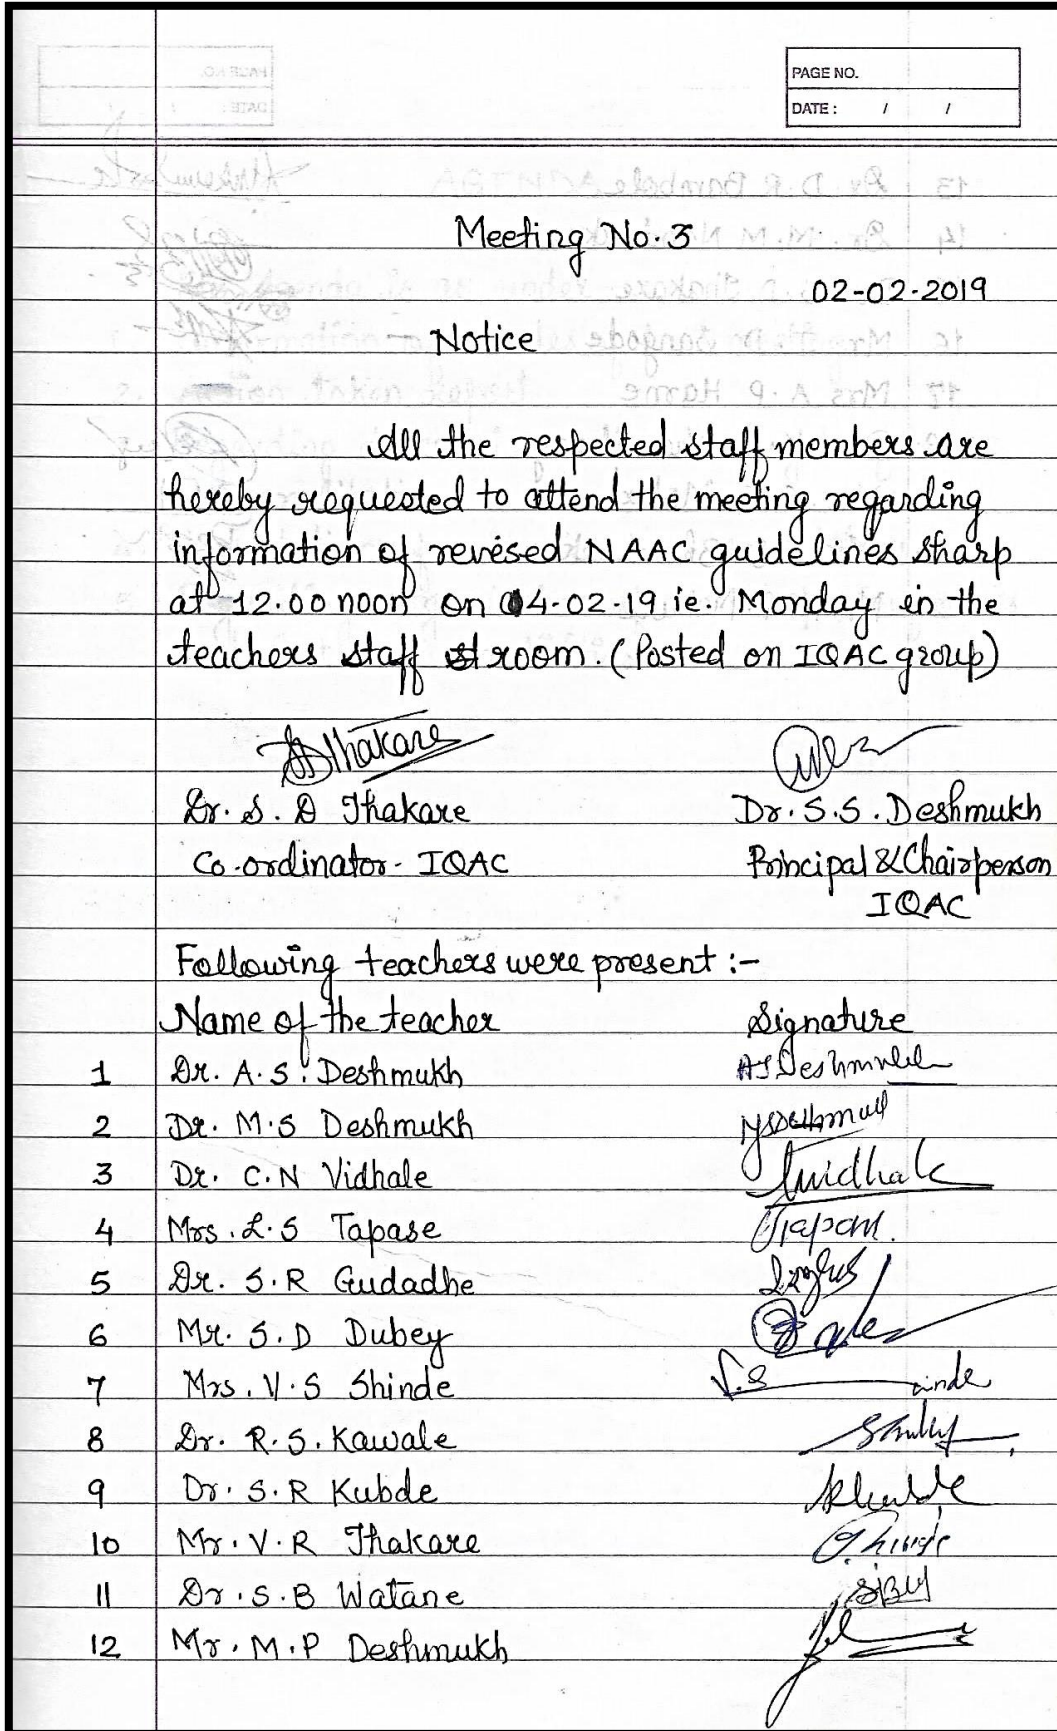 PAGE NO.
DATE : / /
Meeting No. 3
02-02-2019
Notice
All the respected staff members are
hereby requested to attend the meeting regarding
information of revised NAAC guidelines sharp
at 12.00 noon on 04-02-19 ie. Monday in the
teachers staff room. (Posted on IQAC group)
Thakare
Dr. S. D Thakare Dr. S.S. Deshmukh
Co-ordinator- IQAC Principal & Chairperson
IQAC
Following teachers were present :-
Name of the teacher Signature
1 Dr. A.S. Deshmukh ASDeshmukh
2 Dr. M.S Deshmukh
3 Dr. C.N Vidhale
4 Mrs. L.S Tapase
5 Dr. S.R Gudadhe
6 Mr. S.D Dubey
7 Mrs. V.S Shinde
8 Dr. R.S. Kawale
9 Dr. S.R Kubde
10 Mr. V.R Thakare
11 Dr. S.B Watane
12 Mr. M.P Deshmukh